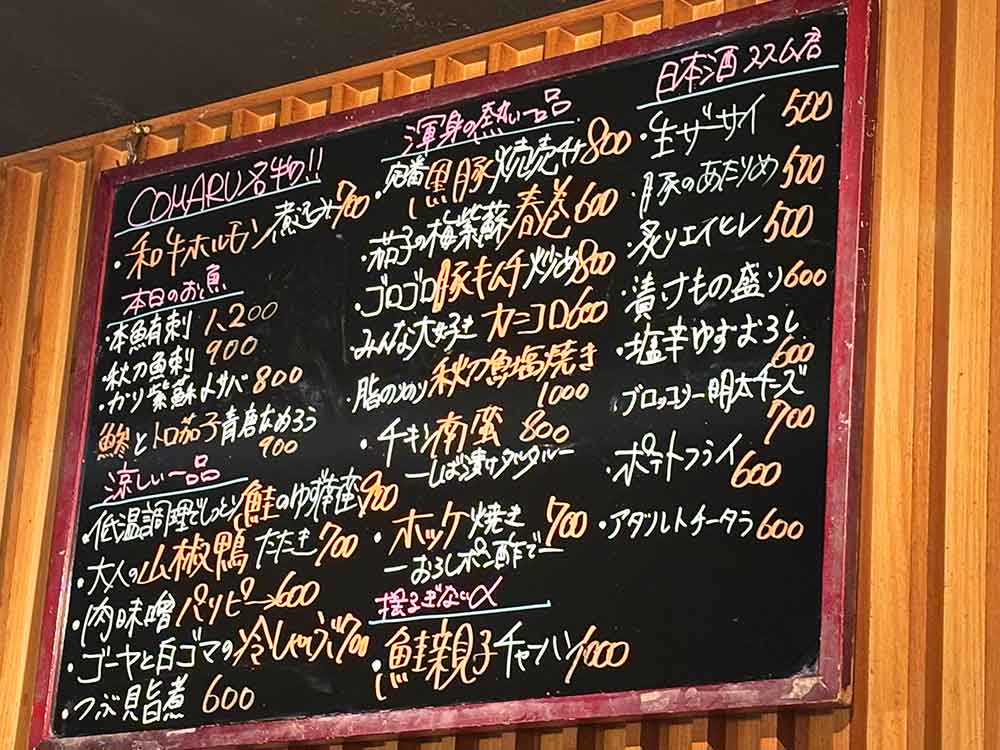 COMARU名物!!
・和牛ホルモン煮込み700
本日のお魚
・本鮪刺 1,200
・秋刀魚刺 900
・ガリ紫蘇〆サバ 800
・鯵とトロ茄子青唐なめろう
900
涼しい一品
・低温調理でしっとり鮭のゆず 900
・大人の山椒鴨たたき700
・肉味噌パリピー→600
・ゴーヤと白ゴマの冷しゃぶ700
・つぶ貝旨煮 600
渾身の熱い一品
・定番黒豚焼売4ケ800
・茄子の梅紫蘇春巻600
・ゴロゴロ豚キムチ炒め800
・みんな大好きカニコロ600
・脂のり秋刀魚塩焼き
1000
・チキン南蛮 800
ーしば漬けタルタルー
・ホッケ焼き 700
ーおろしポン酢でー
揺るぎないα
・鮭親子チャーハン1000
日本酒ススム君
・生ザーサイ 500
・豚のあたりめ 500
・炙りエイヒレ 500
・漬けもの盛り600
・塩辛ゆずおろし
600
・ブロッコリー明太チーズ
700
・ポテトフライ 600
・アダルトチータラ 600